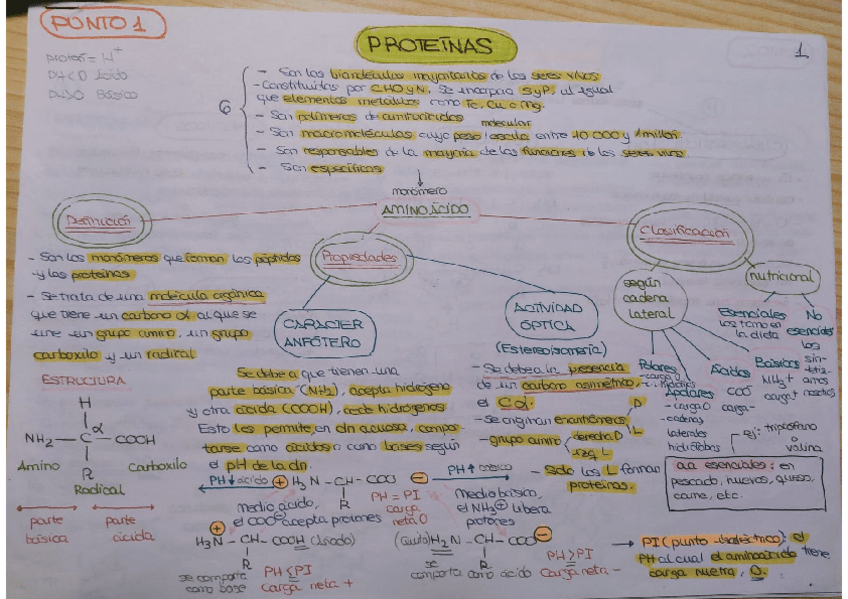 PUNTO 1
PROTEÍNAS
1
protón = H+
PH<0 ácido
PH>0 Básico
6
- Son las biomoléculas mayoritarias de los seres vivos
- Constituidas por CHO y N. Se incorpora S y P, al igual
que elementos metálicos como Fe, Cu o Mg.
- Son polímeros de aminoácidos
- Son macromoléculas cuyo peso molecular oscila entre 10.000 y 1 millón
- Son responsables de la mayoría de las funciones de los seres vivos
- Son específicas
monómero
AMINOÁCIDO
Definición
- Son los monómeros que forman los péptidos
y las proteínas
- Se trata de una molécula orgánica
que tiene un carbono α al que se
une un grupo amino, un grupo
carboxilo y un radical
ESTRUCTURA
H
NH2 — C α — COOH
R
Amino
Carboxilo
Radical
parte básica
parte ácida
Propiedades
CARACTER
ANFÓTERO
Se debe a que tienen una
parte básica (NH2), acepta hidrógeno
y otra ácida (COOH), cede hidrógenos
Esto les permite, en dn acuosa, compor-
tarse como ácidos o como bases según
el pH de la dn.
PH↓ ácido
+ H3N — CH — COO -
R
PH↑ básico
PH = PI
carga
neta 0
Medio ácido,
el COO- acepta protones
Medio básico,
el NH3+ libera
protones
+
H3N — CH — COOH (ácido)
R
se comporta
como base
PH < PI
Carga neta +
H2N — CH — COO -
R
se
comporta como ácido
PH > PI
Carga neta -
ACTIVIDAD
ÓPTICA
(Estereoisomería)
- Se debe a la presencia
de un carbono asimétrico,
el Cα.
- se originan enantiómeros
D
L
- grupo amino
derecha D
izq L
- Solo los L forman
proteínas.
Clasificación
según
cadena
lateral
Polares
Apolares
- carga 0
- cadenas
laterales
hidrófobas
Ácidos
COO-
carga -
Básicos
NH3+
carga +
nutricional
Esenciales
los tomo en
la dieta
No
esenciales
los
sin-
teti-
zamos
nosotros
ej: triptófano
o
valina
a.a esenciales: en
pescado, huevos, queso,
carne, etc.
→ PI (punto isoeléctrico): el
PH al cual el aminoácido tiene
carga nuetra, 0.